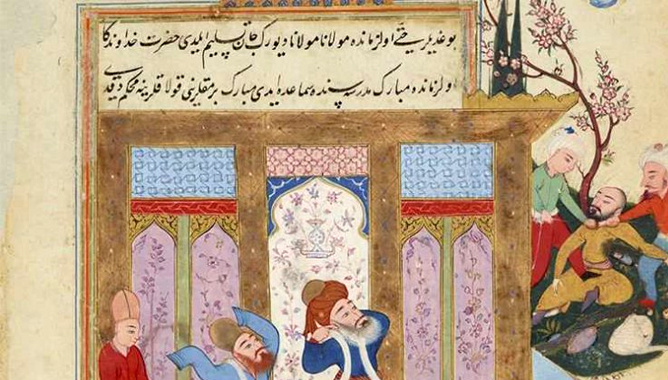 بو غدیلر حقی اول زمانده مولانا مولانا دیورك جان تسلیم ایلدی حضرت خداوندكار
اول زمانده مبارك مدرسه سنده سماعده ایدی مبارك برمقلرینی قولاقلرینه محكم قیدی